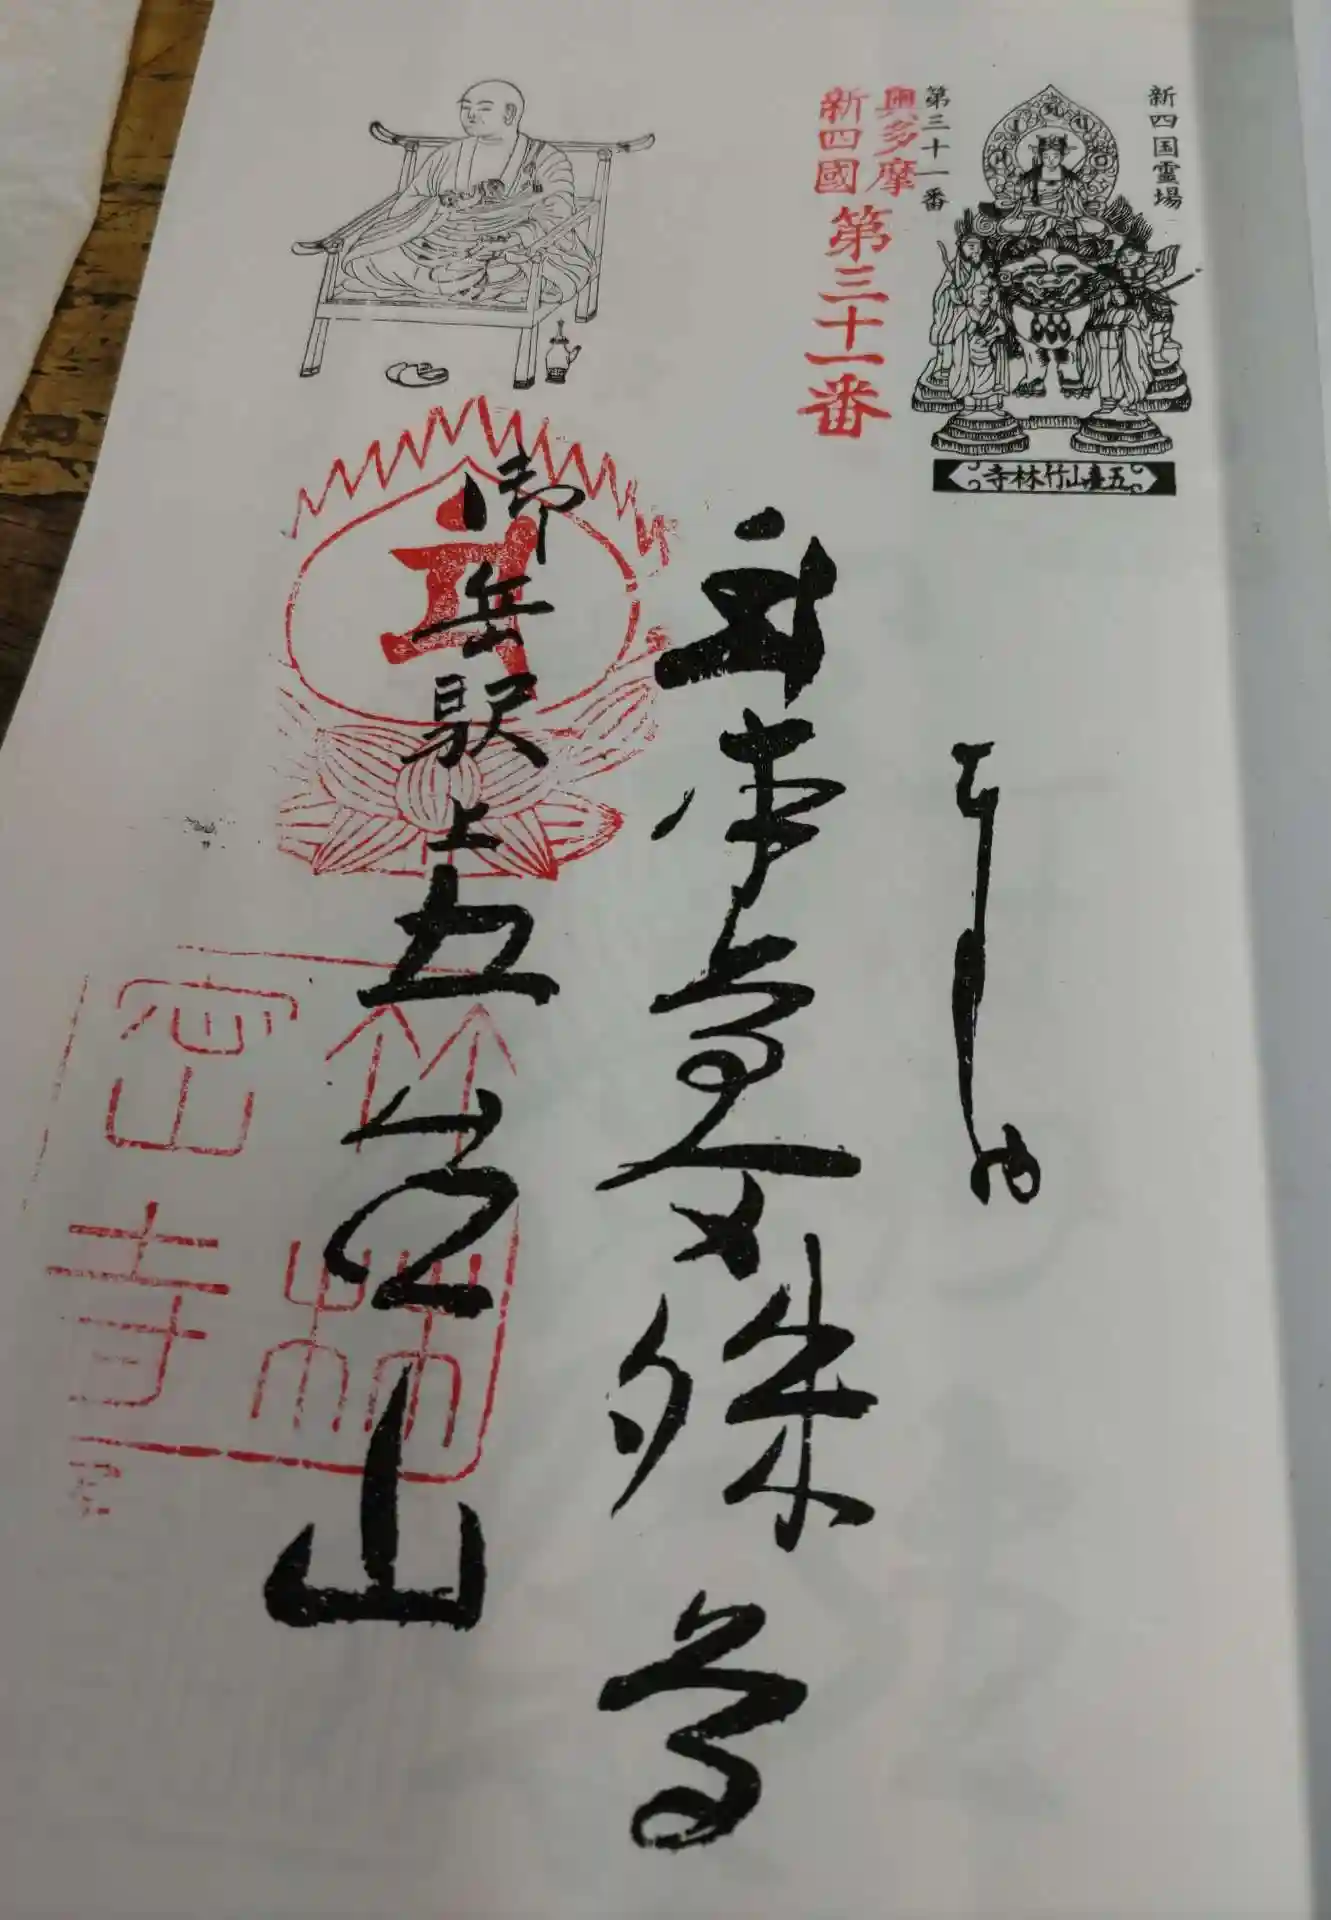 新四国霊場
第三十一番
五臺山竹林寺
奥多摩
新四國
第三十一番
奉納
文殊尊
御岳駅上
五台山
竹林
密寺